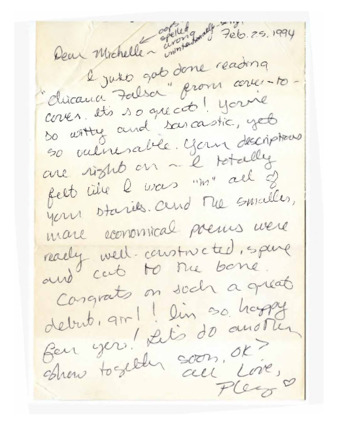 Feb. 25, 1994
oops,
spelled
wrong
unintentionally
Dear Michelle ~
I just got done reading
"Chicana Falsa" from cover-to-
cover. It's so great! You're
so witty and sarcastic, yet
so vulnerable. Your descriptions
are right on ~ I totally
felt like I was "in" all of
your stories. And the smaller,
more economical poems were
really well-constructed, spare
and cut to the bone.
Congrats on such a great
debut, girl! I'm so happy
for you! Let's do another
show together soon, OK?
All Love,